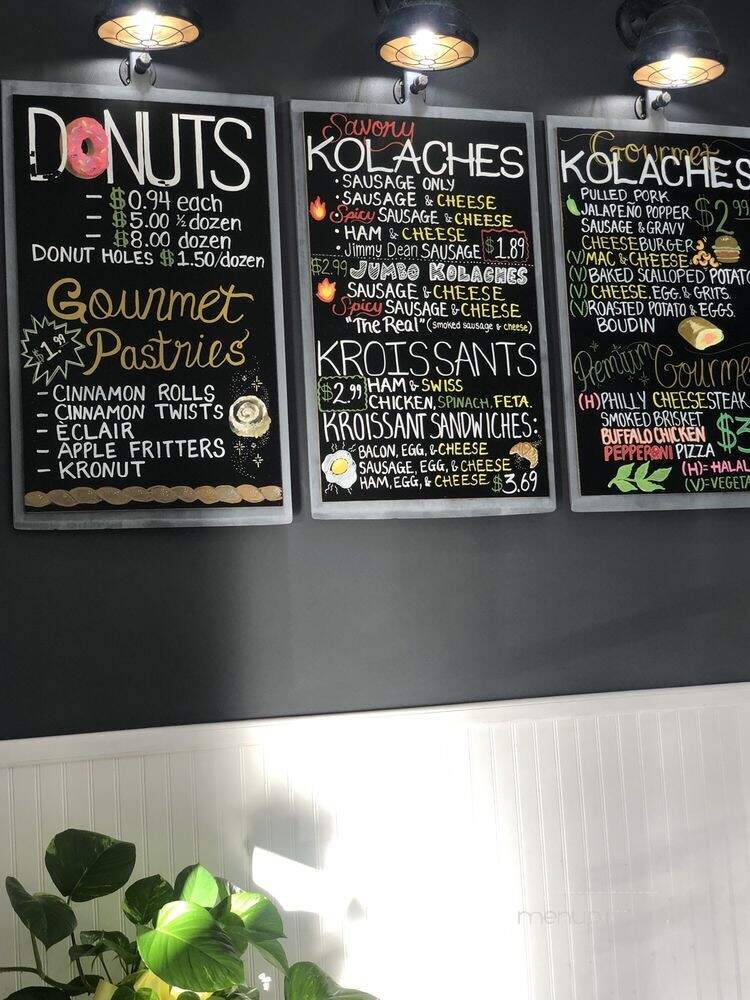 DONUTS
- $0.94 each
- $5.00 ½ dozen
- $8.00 dozen
DONUT HOLES $1.50/dozen
Gourmet
Pastries
$1.99
- CINNAMON ROLLS
- CINNAMON TWISTS
- ÈCLAIR
- APPLE FRITTERS
- KRONUT
Savory
KOLACHES
• SAUSAGE ONLY
• SAUSAGE & CHEESE
• Spicy SAUSAGE & CHEESE
• HAM & CHEESE
• Jimmy Dean SAUSAGE $1.89
$2.99 JUMBO KOLACHES
SAUSAGE & CHEESE
Spicy SAUSAGE & CHEESE
"The Real" (smoked sausage & cheese)
KROISSANTS
$2.99 HAM & SWISS
CHICKEN, SPINACH, FETA
KROISSANT SANDWICHES:
BACON, EGG, & CHEESE
SAUSAGE, EGG, & CHEESE
HAM, EGG, & CHEESE $3.69
Gourmet
KOLACHES
PULLED PORK
JALAPEÑO POPPER $2.99
SAUSAGE & GRAVY
CHEESEBURGER
(V) MAC & CHEESE
(V) BAKED SCALLOPED POTATO
(V) CHEESE, EGG, & GRITS
(V) ROASTED POTATO & EGGS
BOUDIN
Premium Gourme
(H) PHILLY CHEESESTEAK
SMOKED BRISKET
BUFFALO CHICKEN $3
PEPPERONI PIZZA
(H)= HALAL
(V)= VEGETA
menu